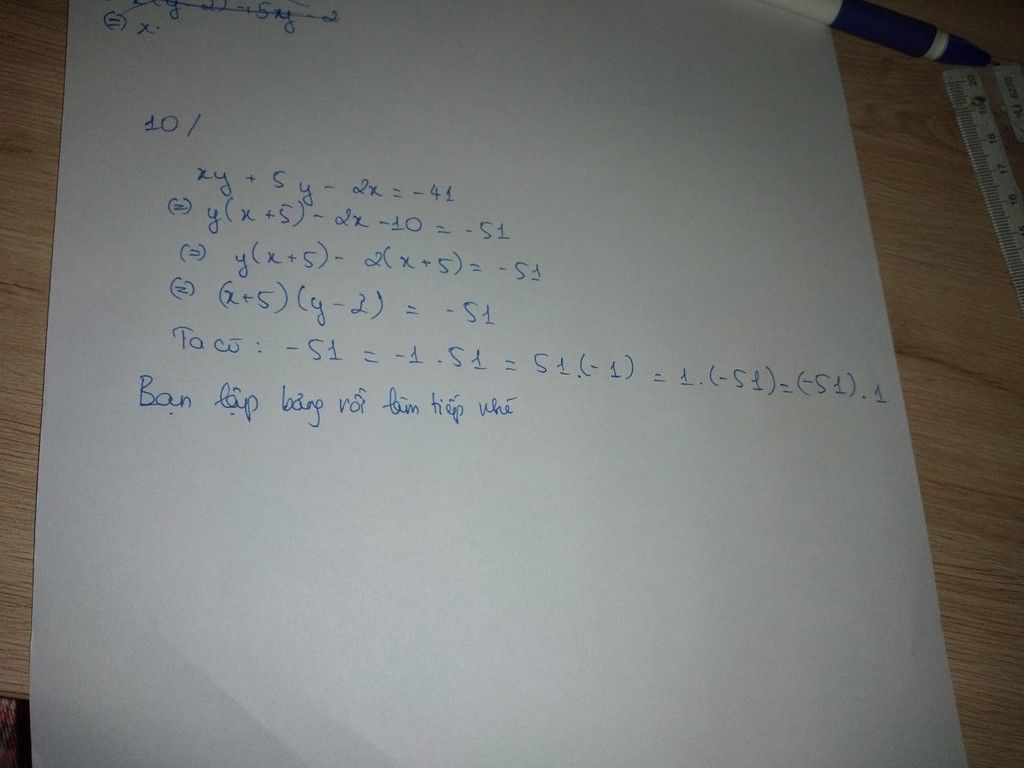 (=) x.
10/
xy + 5y - 2x = -41
(=) y(x+5) - 2x - 10 = -51
(=) y(x+5) - 2(x+5) = -51
(=) (x+5)(y-2) = -51
Ta có : -51 = -1 . 51 = 51.(-1) = 1.(-51)=(-51).1
Bạn lập bảng rồi làm tiếp nhé